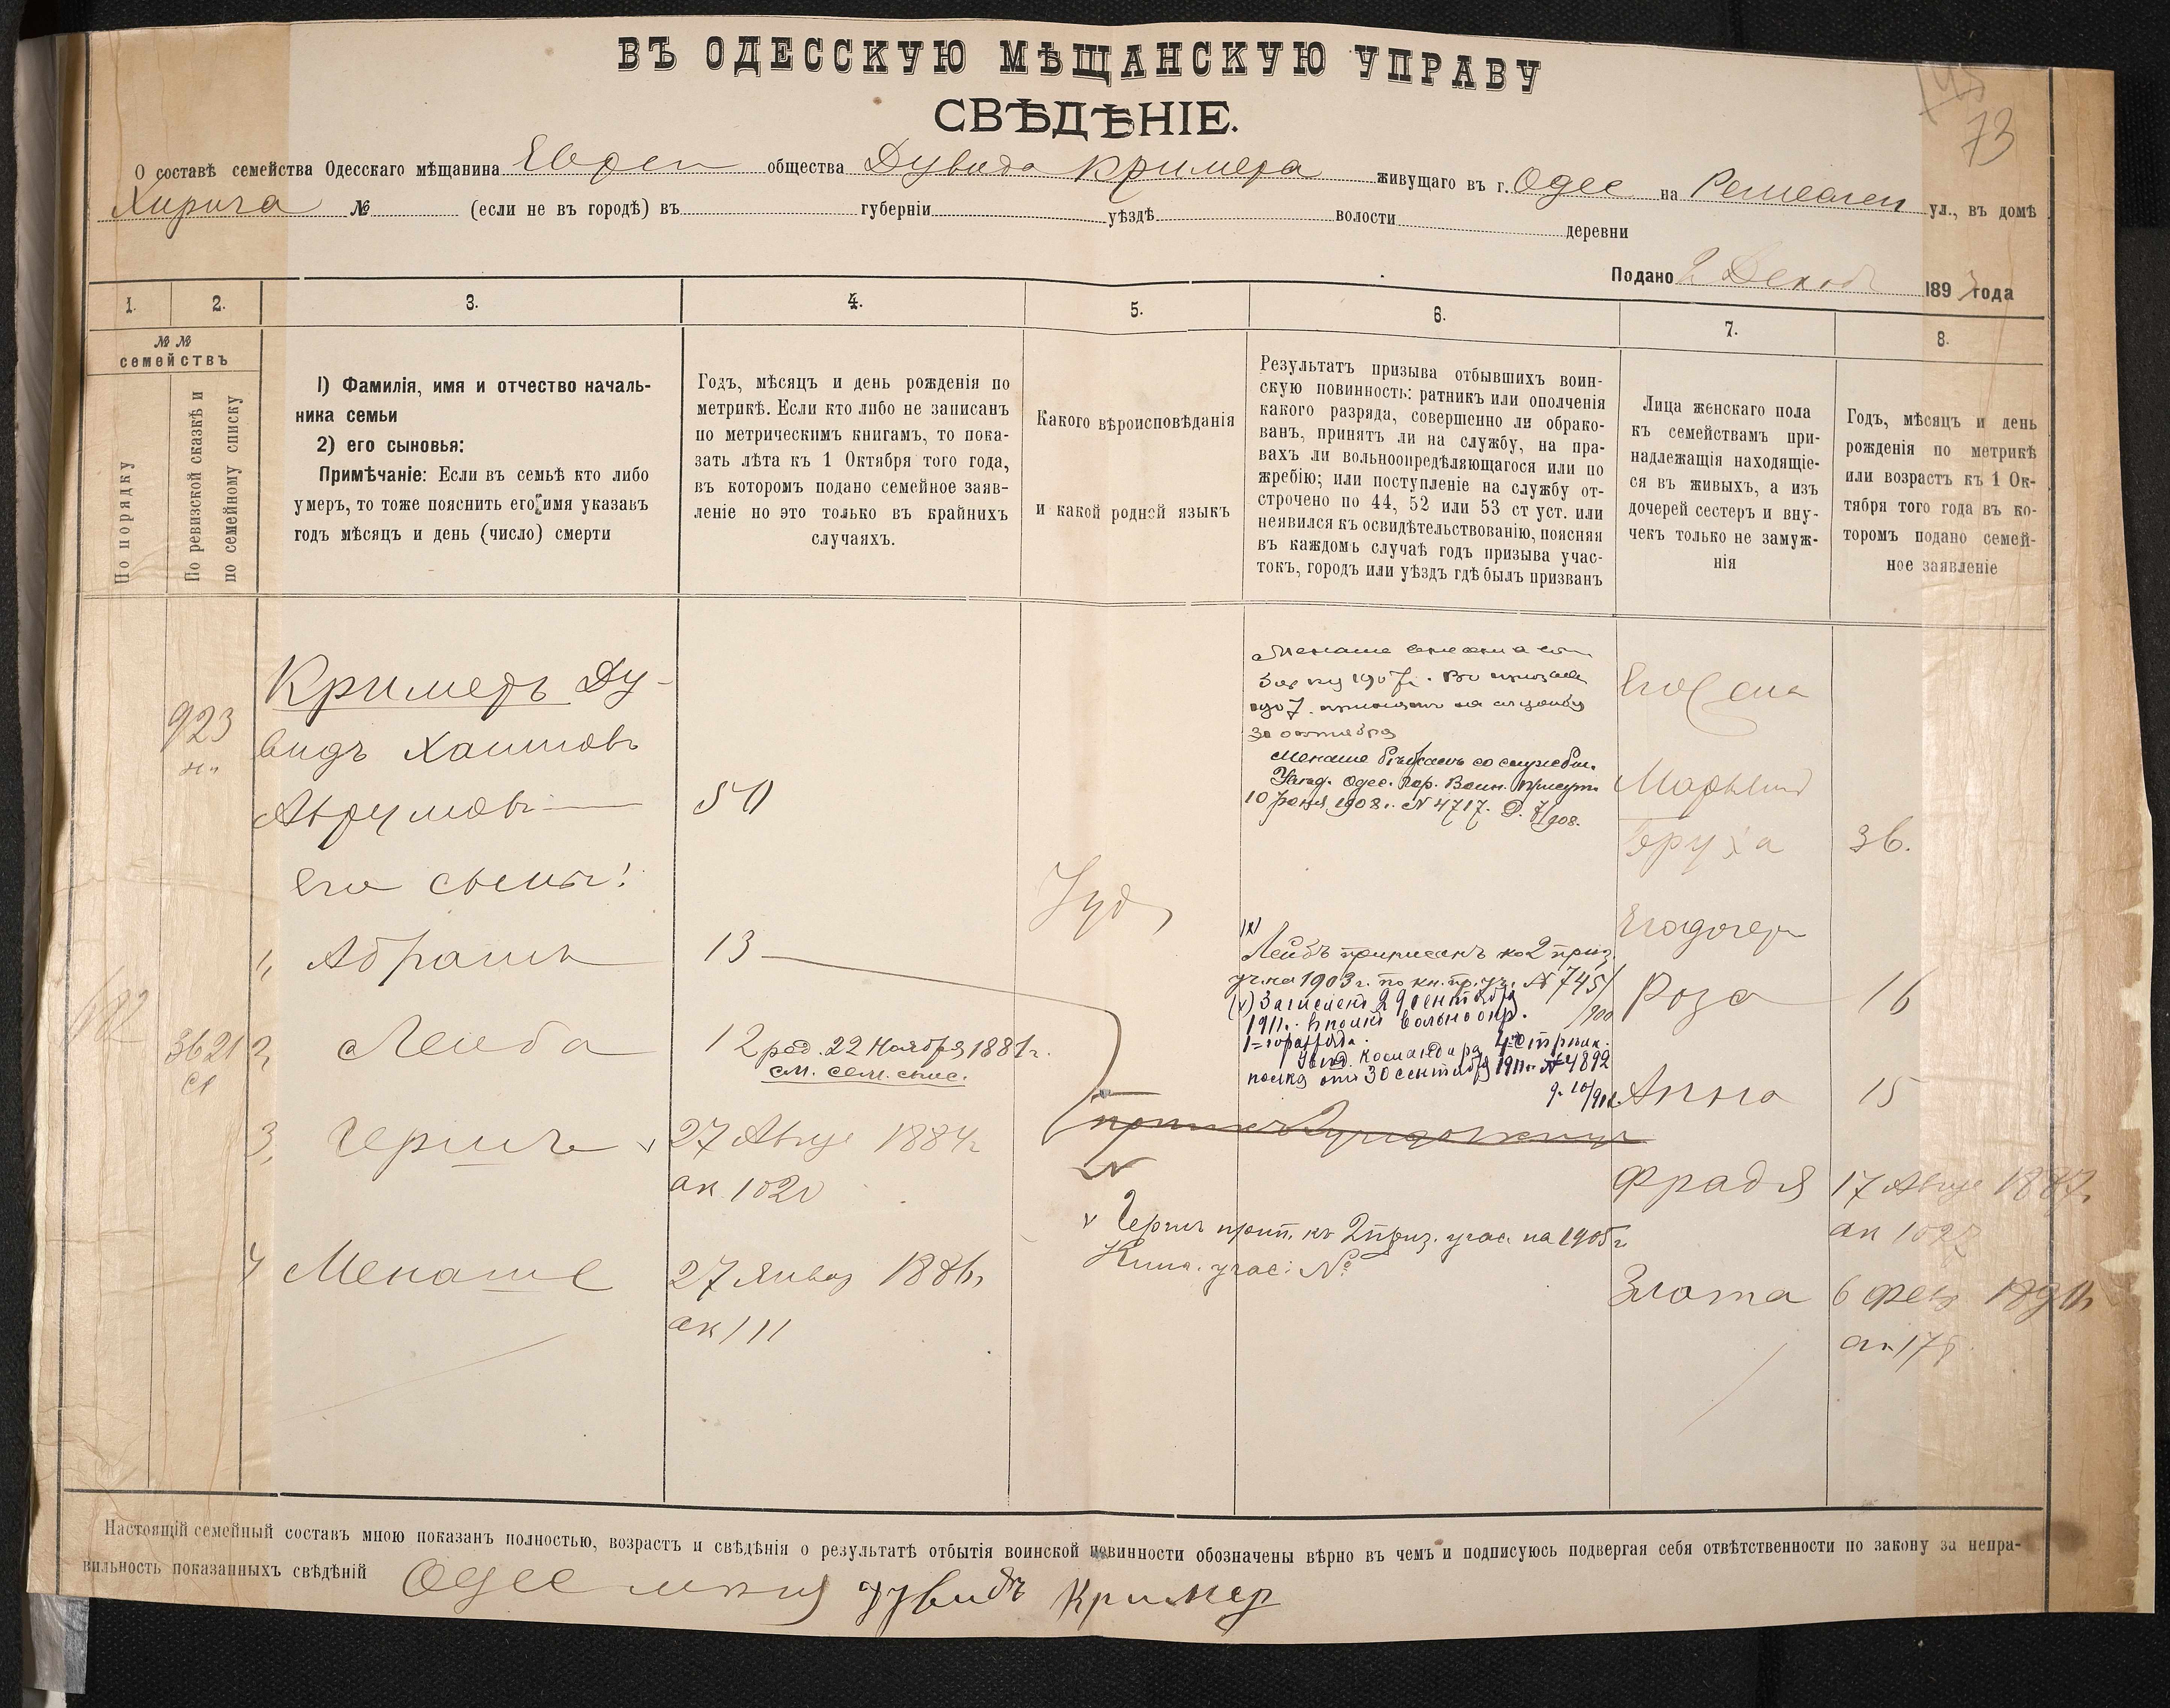 ВЪ ОДЕССКУЮ МѢЩАНСКУЮ УПРАВУ
СВѢДѢНІЕ.
73
О составѣ семейства Одесскаго мѣщанина Еврей общества Дувида Кримера живущаго въ г. Одес на Ремеслен ул., въ домѣ
№ (если не въ городѣ) въ губерніи уѣздѣ волости деревни
Подано 2 Декаб 1893 года
1. 2. 3. 4. 5. 6. 7. 8.
№ №
семействъ
По порядку
По ревизской сказкѣ и
по семейному списку
1) Фамилія, имя и отчество началь-
ника семьи
2) его сыновья:
Примѣчаніе: Если въ семьѣ кто либо
умеръ, то тоже пояснить его имя указавъ
годъ мѣсяцъ и день (число) смерти
Годъ, мѣсяцъ и день рожденія по
метрикѣ. Если кто либо не записанъ
по метрическимъ книгамъ, то пока-
зать лѣта къ 1 Октября того года,
въ которомъ подано семейное заяв-
леніе но это только въ крайнихъ
случаяхъ.
Какого вѣроисповѣданія
и какой родней языкъ
Результатъ призыва отбывшихъ воин-
скую повинность: ратникъ или ополченія
какого разряда, совершенно ли обрако-
ванъ, принятъ ли на службу, на пра-
вахъ ли вольноопредѣляющагося или по
жребію; или поступленіе на службу от-
строчено по 44, 52 или 53 ст уст. или
неявился къ освидѣтельствованію, поясняя
въ каждомъ случаѣ годъ призыва учас-
токъ, городъ или уѣздъ гдѣ былъ призванъ
Лица женскаго пола
къ семействамъ при-
надлежащія находящіе-
ся въ живыхъ, а изъ
дочерей сестеръ и вну-
чекъ только не замуж-
нія
Годъ, мѣсяцъ и день
рожденія по метрикѣ
или возрастъ къ 1 Ок-
тября того года въ ко-
торомъ подано семей-
ное заявленіе
923
Кримеръ Ду-
видъ Хаимовъ
Аврумовъ 50
Его сыны:
1, Абрамъ 13
682
3621
2, Лейба 12 род. 22 Ноября 1881 г.
см. сем. спис.
3, Гершъ 27 Авгус 1884 г
ак 1020
4 Менаше 27 Январ 1886 г
ак 111
Іуд
1907 г. Во призывѣ
1907. принятъ на службу
30 октября
Менаше бѣжалъ со службы.
Увѣд. Одес. Гор. Воин. Присут.
10 Іюня 1908 г. № 4717. Д. 7/908.
Лейбъ приписанъ ко 2 приз.
уч. на 1903 г. по кн. пр. уч. № 745/
900
(v) Зачисленъ 29 сентября
1911 г. въ полкъ вольноопр.
1-го разряда.
Увѣд. Командира 4-го Стрѣлк.
полка отъ 30 сентября 1911 г. № 4892
v Гершъ прип. къ 2 приз. учас. на 1905 г
Книг. учас: №
Его жена
Марьям
Бруха 36.
Его дочери
Роза 16
Анна 15
Фрадя 17 Авгус 1887 г.
ак 1027
Злота 6 Фев 1890 г
ак 175
Настоящій семейный составъ мною показанъ полностью, возрастъ и свѣдѣнія о результатѣ отбытія воинской повинности обозначены вѣрно въ чемъ и подписуюсь подвергая себя отвѣтственности по закону за непра-
вильность показанныхъ свѣдѣній Одес мѣщ Дувидъ Кример